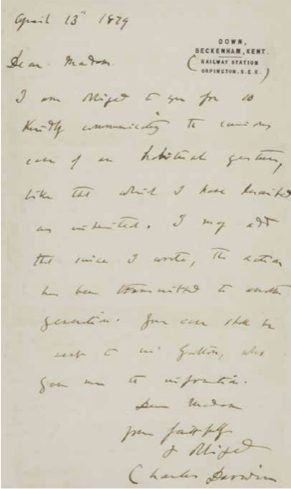 April 13th 1879
DOWN,
BECKENHAM, KENT.
(RAILWAY STATION
ORPINGTON. S.E.R.)
Dear Madam
I am obliged to you for so
kindly communicating the curious
case of an habitual gesture,
like that which I have described
as inherited. I may add
that since I wrote, the action
has been transmitted to another
generation. Your case shall be
sent to Mr Galton, who
gave me the information.
Dear Madam
yours faithfully
& obliged
Charles Darwin